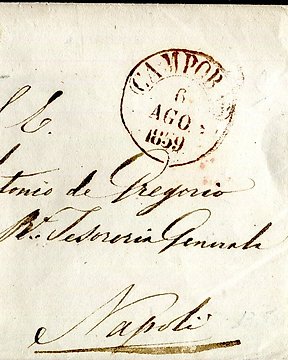 CAMPOB
6
AGO.
1859
S. E.
Antonio de Gregorio
Rl. Tesoreria Generale
Napoli